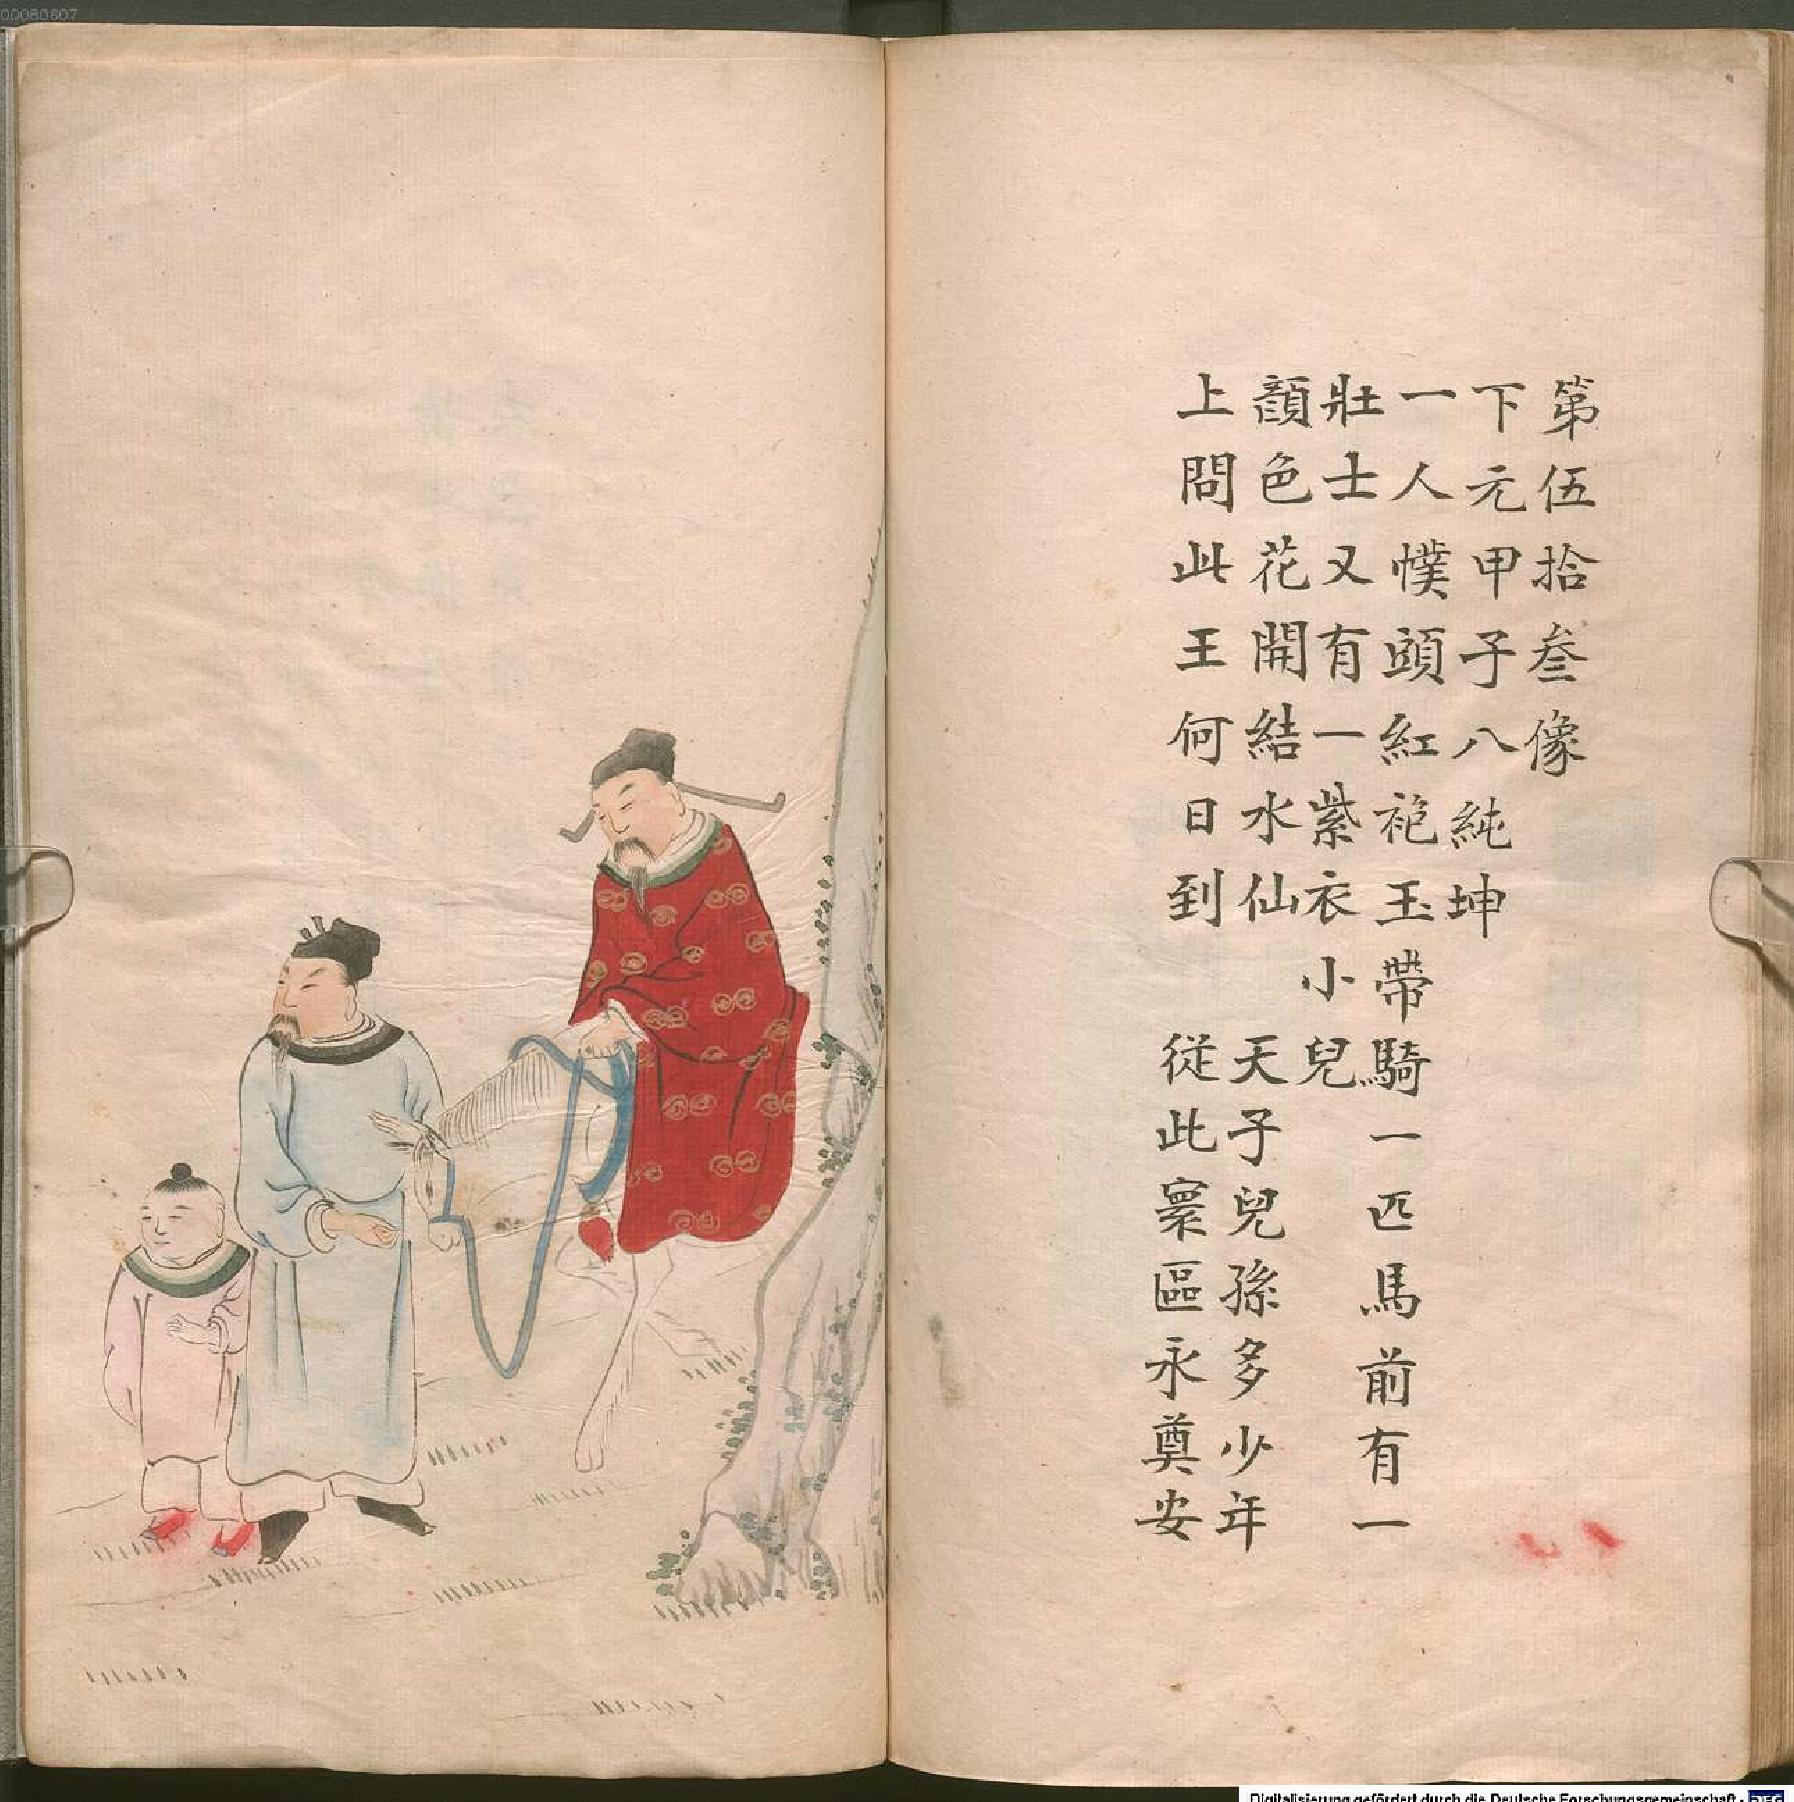 00080607
第伍拾叁像
下元甲子八純坤
一人幞頭紅袍玉帶騎一匹馬前有一
壯士又有一紫衣小兒
顏色花開結水仙 天子兒孫多少年
上問此王何日到 從此寰區永奠安
Digitalisierung gefördert durch die Deutsche Forschungsgemeinschaft - DFG